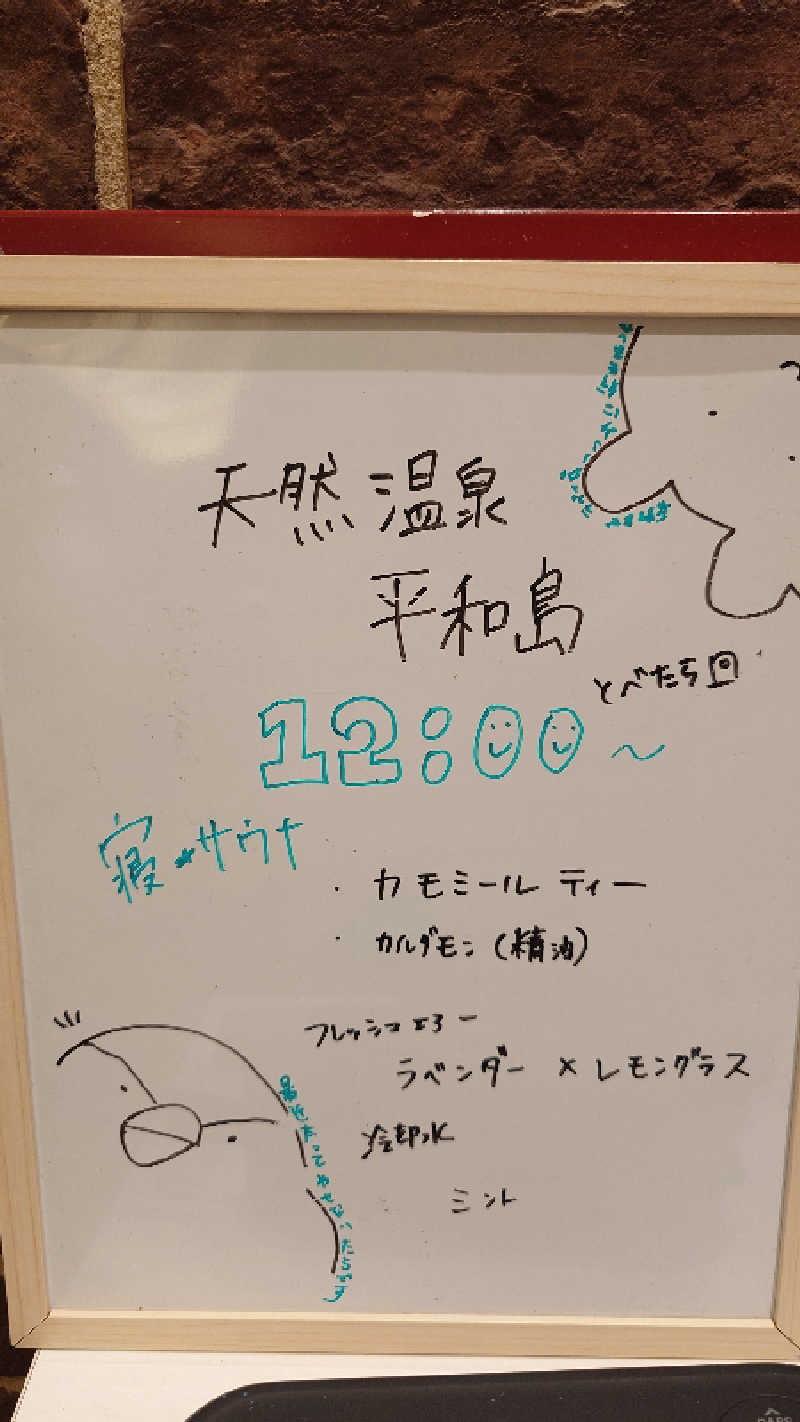 天然温泉
平和島
とべたら回
12:00〜
寝サウナ
・カモミールティー
・カルダモン(精油)
フレッシュエアー
ラベンダー × レモングラス
冷却水
ミント